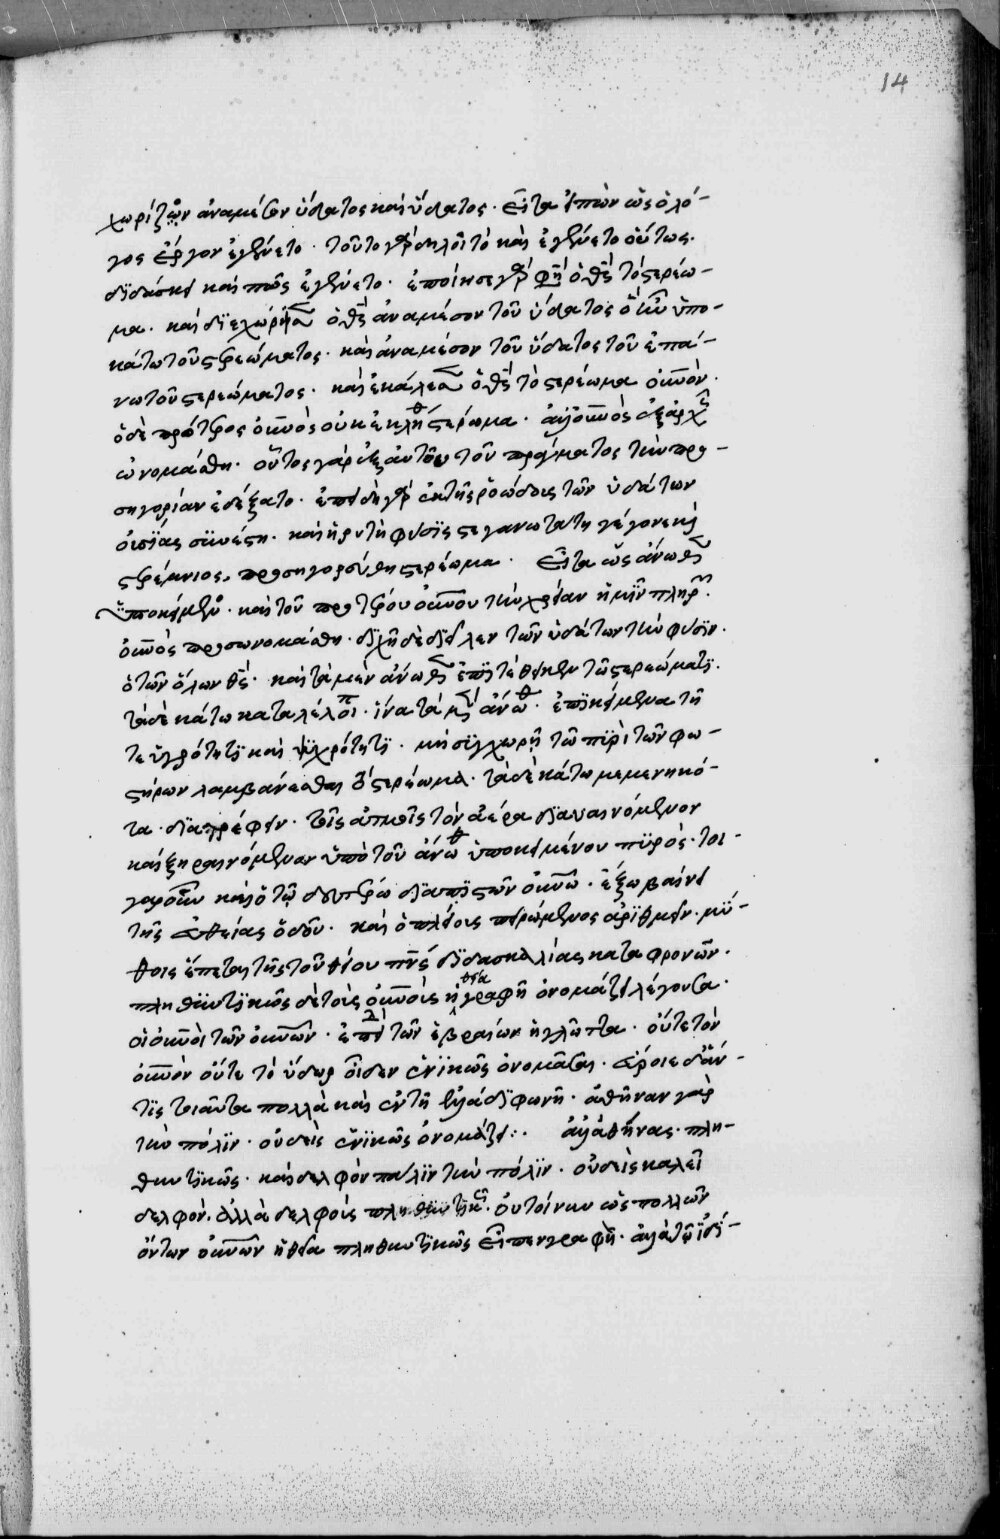 14
χωρίζων ἀναμέσον ὕδατος καὶ ὕδατος. εἶτα εἰπὼν ὡς ὁ λό-
γος ἔργον ἐγένετο. τοῦτο γὰρ δηλοῖ τὸ καὶ ἐγένετο οὕτως.
διδάσκει καὶ πῶς ἐγένετο. ἐποίησε γὰρ φησὶ ὁ θεὸς τὸ στερέω-
μα. καὶ διεχώρισεν ὁ θεὸς ἀναμέσον τοῦ ὕδατος ὃ ἦν ὑπο-
κάτω τοῦ στερεώματος. καὶ ἀναμέσον τοῦ ὕδατος τοῦ ἐπά-
νω τοῦ στερεώματος. καὶ ἐκάλεσεν ὁ θεὸς τὸ στερέωμα οὐνὸν.
ὁ δὲ πρότερος οὐνὸς οὐκ ἐκλήθη στερέωμα. ἀλλ' οὐνὸς ἐξ ἀρχῆς
ὠνομάσθη. οὗτος γὰρ ἐξ αὐτοῦ τοῦ πράγματος τὴν προ-
σηγορίαν ἐδέξατο. ἐπειδὴ γὰρ ἐκ τῆς ῥοώδους τῶν ὑδάτων
οὐσίας συνέστη. καὶ ἡ ρυτὴ φύσις στεγανωτάτη γέγονε καὶ
στερέμνιος, προσηγορεύθη στερέωμα. εἶτα ὡς ἄνωθεν
ὑποκείμενον. καὶ τοῦ προτέρου οὐνοῦ τὴν χρείαν ἡμῖν πληρῶν.
οὐνὸς προσωνομάσθη. διχῆ δὲ διεῖλεν τῶν ὑδάτων τὴν φύσιν.
ὁ τῶν ὅλων θεός. καὶ τὰ μὲν ἄνωθεν ἐπιτέθεικεν τῷ στερεώματι.
τὰ δὲ κάτω καταλέλοιπε. ἵνα τὰ μὲν ἄνωθεν ἐπικείμενα τῆ
τε ὑγρότητι καὶ ψυχρότητι. μὴ συγχωρῆ τῷ πυρὶ τῶν φω-
στήρων λαμβάνεσθαι τὸ στερέωμα. τὰ δὲ κάτω μεμενηκό-
τα. διατρέφειν. τοῖς ἀτμοῖς τὸν ἀέρα διαυαινόμενον
καὶ ξηραινόμενον ὑπὸ τοῦ ἄνωθεν ὑποκειμένου πυρός. τοι-
γαροῦν καὶ ὁ τῷ δευτέρω διαπιστῶν οὐνῶ. ἔξω βαίνει
τῆς εὐθείας ὁδοῦ. καὶ ὁ πλείους πειρώμενος ἀριθμεῖν. μύ-
θοις ἕπεται τῆς τοῦ θείου πνς διδασκαλίας καταφρονῶν.
πληθυντικῶς δὲ τοὺς οὐνοὺς ἡ θεία γραφῆ ὀνομάζει λέγουσα.
οἱ οὐνοὶ τῶν οὐνῶν. ἐπεὶ τῶν ἑβραίων ἡ γλῶττα. οὔτε τὸν
οὐνὸν οὔτε τὸ ὕδωρ οἶδεν ἑνικῶς ὀνομάσαι. εὕροι δ' ἄν
τις τοιαῦτα πολλὰ καὶ ἐν τῆ ἑλλάδι φωνῆ. ἀθήναν γὰρ
τὴν πόλιν. οὐδεὶς ἑνικῶς ὀνομάζει: ἀλλ' ἀθήνας. πλη-
θυντικῶς. καὶ δελφὸν πάλιν τὴν πόλιν. οὐδεὶς καλεῖ
δελφὸν. ἀλλὰ δελφοὺς πληθυντικῶς. οὐ τοίνυν ὡς πολλῶν
ὄντων οὐνῶν ἡ θεία πληθυντικῶς εἶπεν γραφῆ. ἀλλὰ τὸ ἰδί-